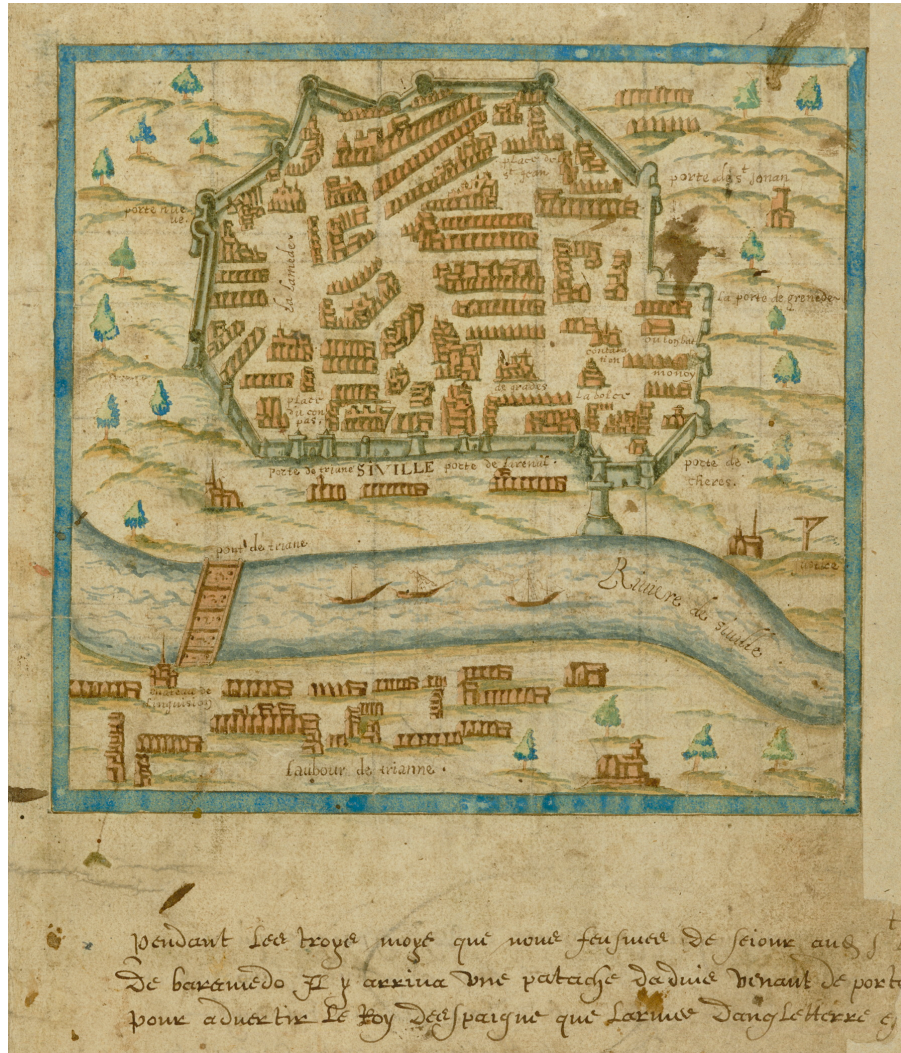 place de
st Jean
porte de st Jonan
porte neu
ve
la lamede
la porte de grenede
contrata
tion
monoy
de grades
la bolce
place
du con
pas
porte de triane SIVILLE porte de
porte de
cheres
pont de triane
Justice
Riviere de siville
chateau de
linquision
faubour de trianne
pendant les troys moys que nous feusmes de seiour aus
De baramedo Il y arriva une patache dadvis venant de porto
pour advertir Le Roy despaigne que Larmee Dangletterre